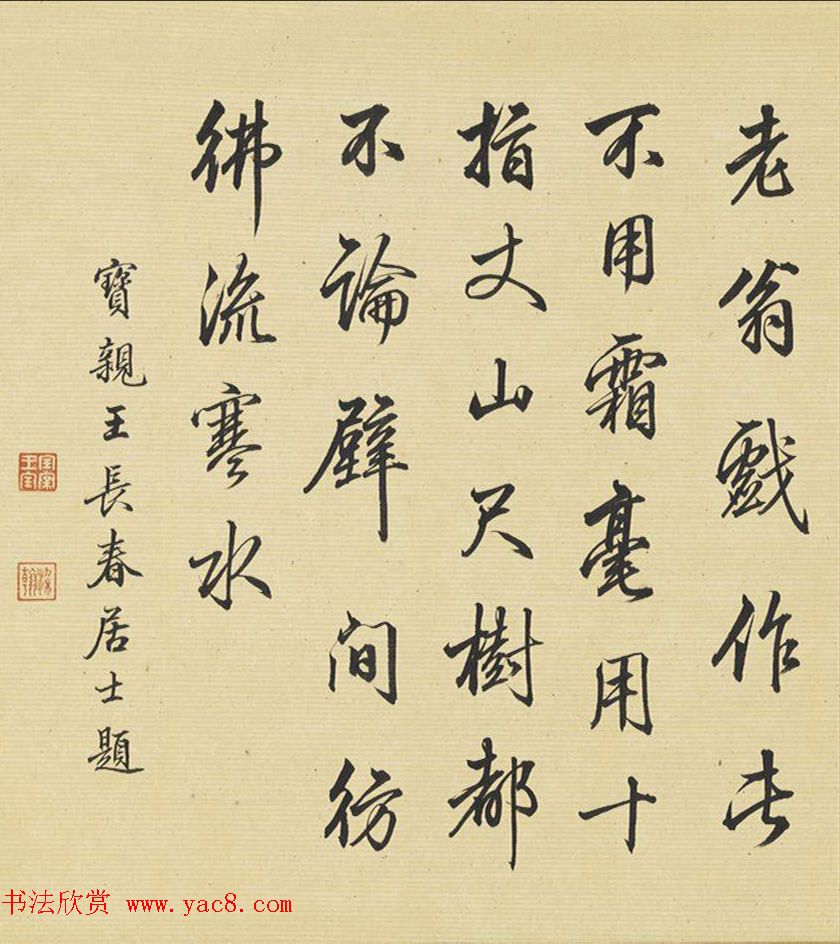 老翁戲作此
不用霜毫用十
指丈山尺樹都
不論壁間彷
彿流寒水
寶親王長春居士題
書法欣赏 www.yac8.com